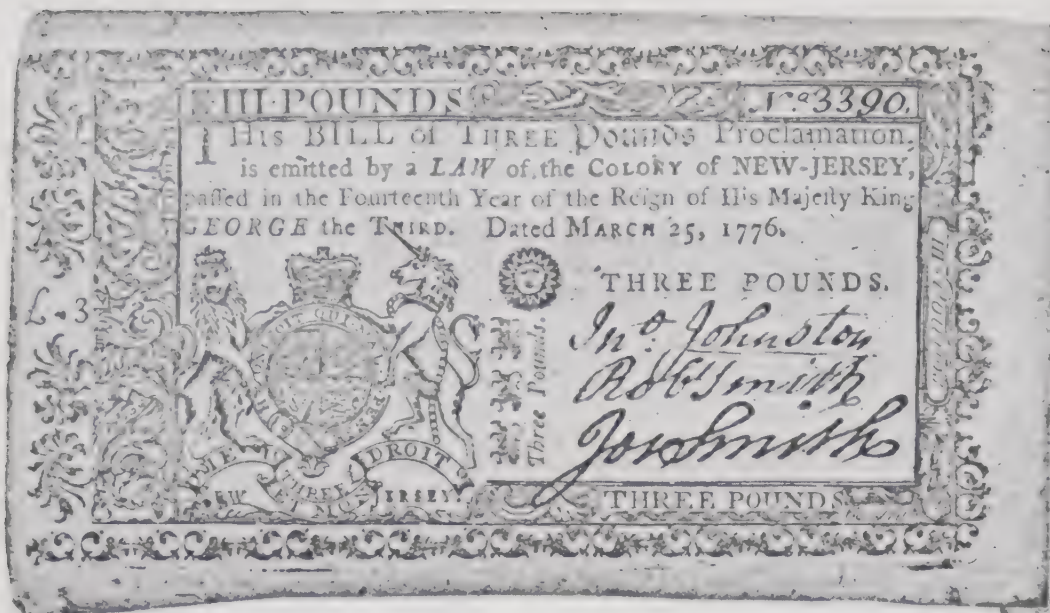 III·POUNDS
No. 3390.
THIS BILL of THREE Pounds Proclamation,
is emitted by a LAW of the COLORY of NEW-JERSEY,
passed in the Fourteenth Year of the Reign of His Majesty King
GEORGE the THIRD. Dated MARCH 25, 1776.
THREE POUNDS.
L.3
Three Pounds.
Jno. Johnston
Robt Smith
Jos Smith
DIEU ET MON DROIT
THREE
JERSEY
THREE POUNDS